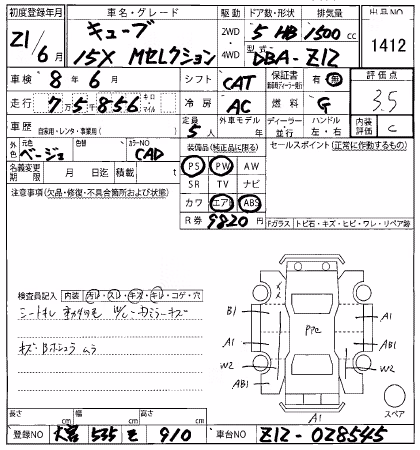 初度登録年月 車名・グレード 駆動 ドア数・形状 排気量 出品NO
21/6月 キューブ 15X Mセレクション 2WD・4WD 5 HB 1500cc 1412
型式 DBA-Z12
車検 8年6月 シフト CAT 保証書 有・無 評価点
走行 7万5千856 キロ・マイル 冷房 AC 燃料 G 3.5
車歴 自家用・レンタ・事業用( ) 定員 5人 外車モデル 年 ディーラー・並行 ハンドル 左・右 内装評価 C
外色 元色 ベージュ 色替 カラーNO CAD 装備品(純正品に限る) セールスポイント(正常に作動するもの)
名義変更期限 月 日迄 積載 t PS PW AW
注意事項(欠品・修復・不具合箇所および状態) SR TV ナビ
カワ エアB ABS
R券 9820円 Fガラス トビ石・キズ・ヒビ・ワレ・リペア跡
検査員記入 内装 汚レ・スレ・キズ・キレ・コゲ・穴
B1 A1
PPC
A1 AB1
W2 W2
AB1
スペア
A1
長さ cm 幅 cm 高さ cm
登録NO 大宮 535 910 車台NO Z12-028545